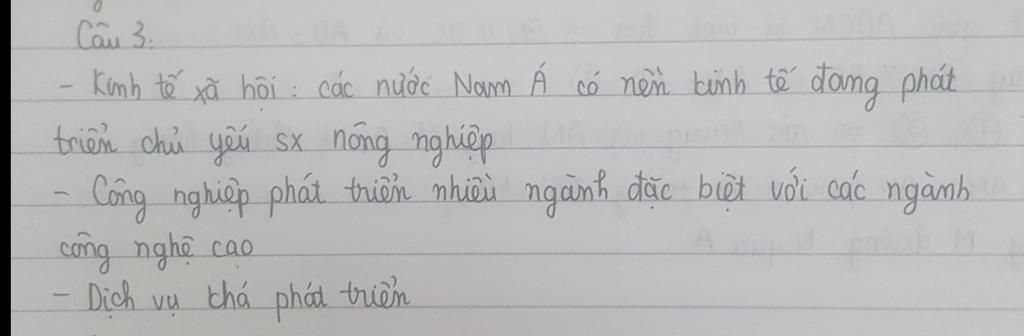 Câu 3:
- Kinh tế xã hội : các nước Nam Á có nền kinh tế đang phát
triển chủ yếu sx nông nghiệp
- Công nghiệp phát triển nhiều ngành đặc biệt với các ngành
công nghệ cao
- Dịch vụ khá phát triển